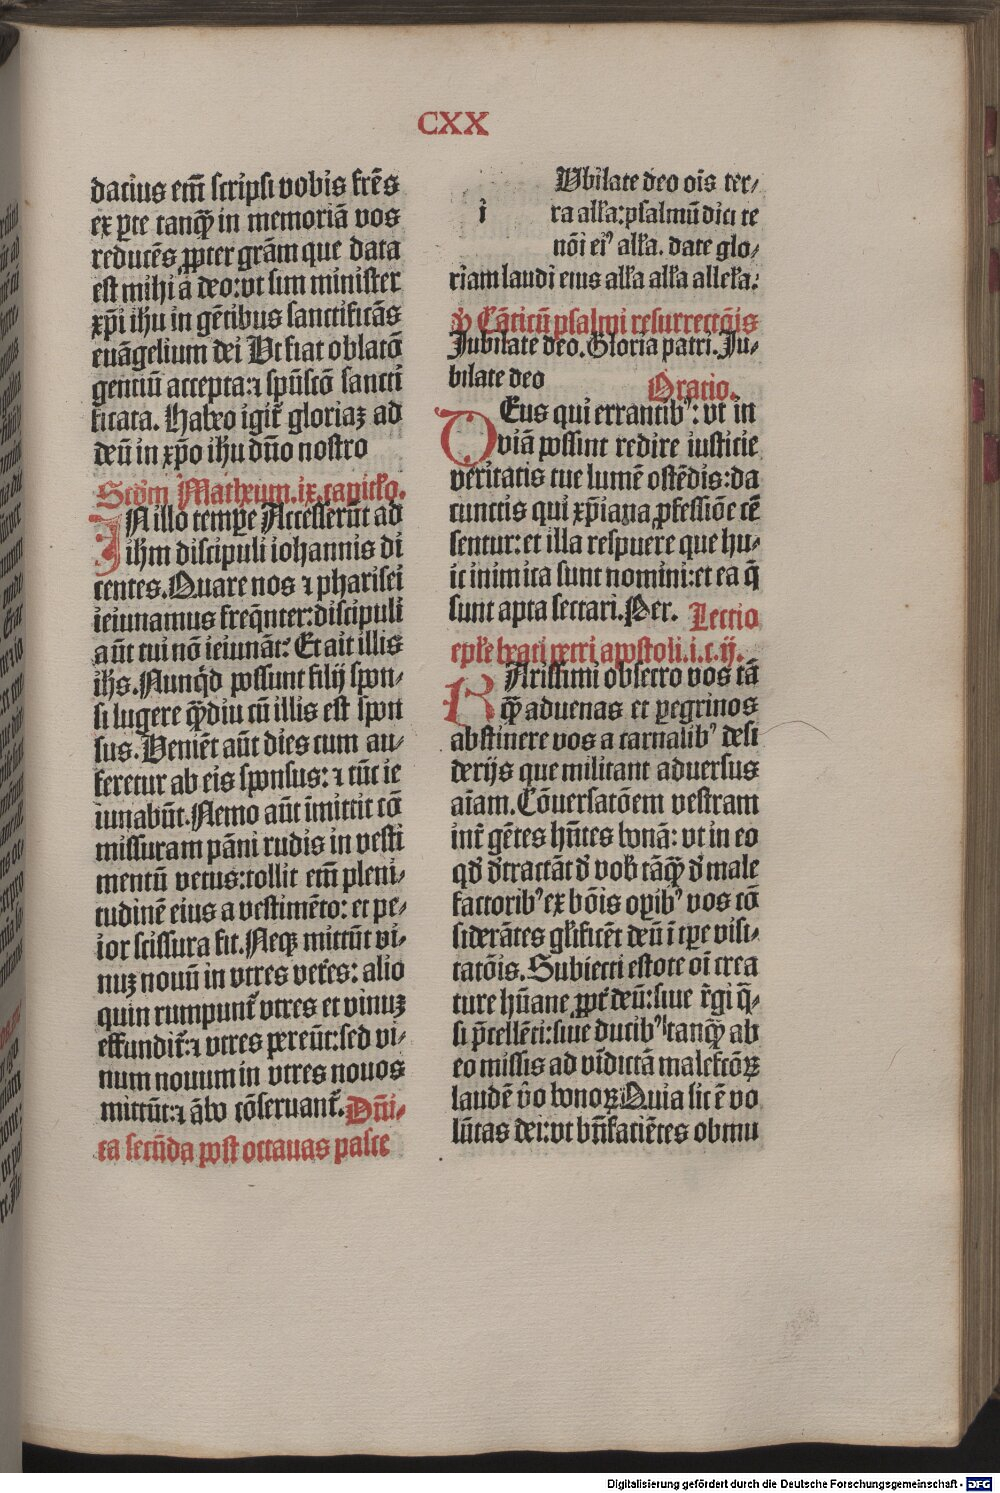 CXX
dacius em̄ scripsi vobis fr̄es
ex ꝑte tanꝙ̄ in memoriā vos
reducēs ꝓpter grām que data
est mihi a deo: vt sim minister
xp̄i ihu in gētibus sanctificās
euāgelium dei Vt fiat oblatō
gentiū accepta: ⁊ spūscō sancti
ficata. Habeo igit̄ gloriaꝫ ad
deū in xp̄o ihu dn̄o nostro
Scd̄m Matheum. ix. capitl̄o.
IN illo temꝑe Accesserūt ad
ihm discipuli iohannis di
centes. Quare nos ⁊ pharisei
ieiunamus freq̄nter: discipuli
aūt tui nō ieiunāt: Et ait illis
ihs. Nunq̄d possunt filij spon⸗
si lugere ꝙ̄diu cū illis est spon
sus. Veniēt aūt dies cum au⸗
feretur ab eis sponsus: ⁊ tūc ie
iunabūt. Nemo aūt īmittit cō
missuram pāni rudis in vesti
mentū vetus: tollit em̄ pleni⸗
tudinē eius a vestimēto: et pe⸗
ior scissura fit. Neqꝫ mittūt vi⸗
nuꝫ nouū in vtres vet̄es: alio
quin rumpunt̄ vtres et vinuꝫ
effundit̄: ⁊ vtres pereūt: sed vi⸗
num nouum in vtres nouos
mittūt: ⁊ ābo cōseruant̄. Dn̄i⸗
ca secūda post octauas pasce
Vbilate deo oīs ter⸗
i ra alł̄a: psalmū dici te
nōi eiꝰ alł̄a. date glo⸗
riam laudi eius alł̄a alł̄a allel̄a:
ꝟ Cāticū psalmi resurrectōis
Jubilate deo. Gloria patri. Ju⸗
bilate deo Oratio.
DEus qui errantibꝰ: vt in
viā possint redire iusticie
veritatis tue lumē ostēdis: da
cunctis qui xp̄iana ꝓfessiōe cē
sentur: et illa respuere que hu⸗
ic inimica sunt nomini: et ea q̄
sunt apta sectari. Per. Lectio
epl̄e beati petri apostoli. i. c. ij.
KArissimi obsecro vos tā
ꝙ̄ aduenas et ꝑegrinos
abstinere vos a carnalibꝰ desi
derijs que militant aduersus
aīam. Cōuersatōem vestram
int̄ gētes hn̄tes bonā: vt in eo
qd̄ d̄tractāt d̄ vob̄ tāꝙ̄ d̄ male
factoribꝰ ex bōis oꝑibꝰ vos cō
siderātes gl̄ificēt deū ī tꝑe visi⸗
tatōis. Subiecti estote oī crea
ture hūane ꝓpt̄ deū: siue r̄gi q̄⸗
si p̄cellēti: siue ducibꝰ tanꝙ̄ ab
eo missis ad vīdictā malefctōꝝ
laudē v̄o bonoꝝ Quia sic ē vo
lūtas dei: vt bn̄faciētes obmu
Digitalisierung gefördert durch die Deutsche Forschungsgemeinschaft - DFG